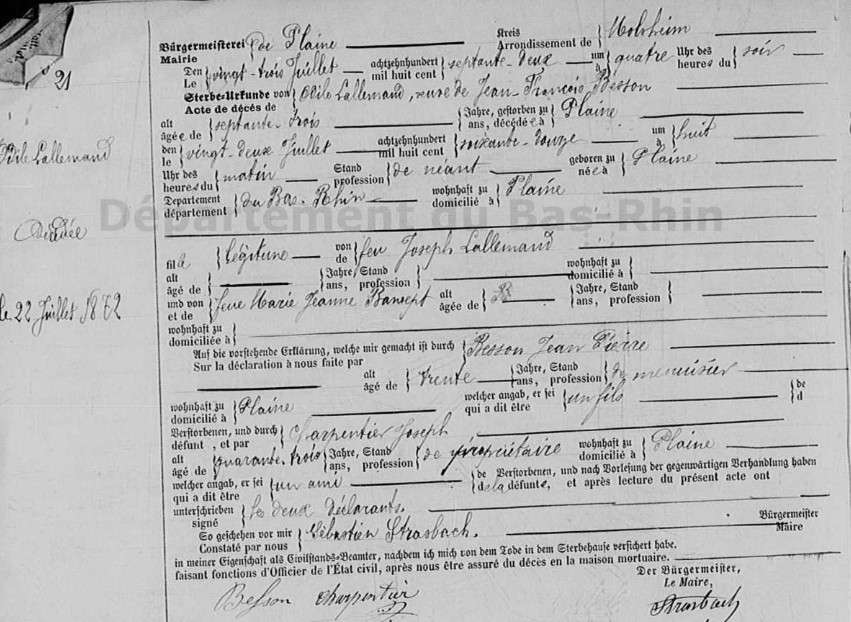 21
Odile Lallemand
Décédée
le 22 Juillet 1872
Bürgermeisterei } de Plaine Kreis } Molsheim
Mairie Arrondissement de
Den } vingt-trois Juillet achtzehnhundert } septante-deux um } quatre Uhr des } soir
Le mil huit cent à heures du
Sterbe-Urkunde von } Odile Lallemand, veuve de Jean-François Besson
Acte de décès de
alt } septante-trois Jahre, gestorben zu } Plaine
âgée de ans, décédée à
den } vingt-deux Juillet achtzehnhundert } soixante-douze um } huit
le mil huit cent à
Uhr des } matin Stand } de néant geboren zu } Plaine
heures du profession née à
Departement } du Bas-Rhin wohnhaft zu } Plaine
département domicilié à
Département du Bas-Rhin
fille } légitime von } feu Joseph Lallemand
de
alt } Jahre, Stand } wohnhaft zu }
âgé de ans, profession domicilié à
und von } feue Marie Jeanne Bansept alt } Jahre, Stand }
et de âgée de ans, profession
wohnhaft zu }
domiciliée à
Auf die vorstehende Erklärung, welche mir gemacht ist durch } Besson Jean Pierre
Sur la déclaration à nous faite par
alt } trente Jahre, Stand } de menuisier
âgé de ans, profession
wohnhaft zu } Plaine welcher angab, er sei } un fils } de
domicilié à qui a dit être d
Verstorbenen, und durch } Charpentier Joseph
défunt , et par
alt } quarante-trois Jahre, Stand } de propriétaire wohnhaft zu } Plaine
âgé de ans, profession domicilié à
welcher angab, er sei } un ami } de Verstorbenen, und nach Vorlesung der gegenwärtigen Verhandlung haben
qui a dit être de la défunte, et après lecture du présent acte ont
unterschrieben } les deux déclarants.
signé
So geschehen vor mir } Sébastien Strasbach. Bürgermeister
Constaté par nous Maire
in meiner Eigenschaft als Civilstands-Beamter, nachdem ich mich von dem Tode in dem Sterbehause versichert habe.
faisant fonctions d'Officier de l'État civil, après nous être assuré du décès en la maison mortuaire.
Der Bürgermeister,
Le Maire,
Besson Charpentier Strasbach